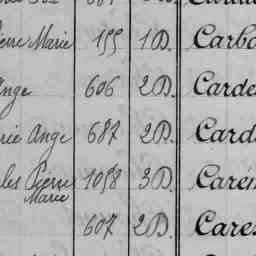 erre Marie 155 1 D. Carbo
Ange 606 2 D. Carde
rie Ange 687 2 D. Card
les Pierre Marie 1058 3 D. Carém
607 2 D. Cares